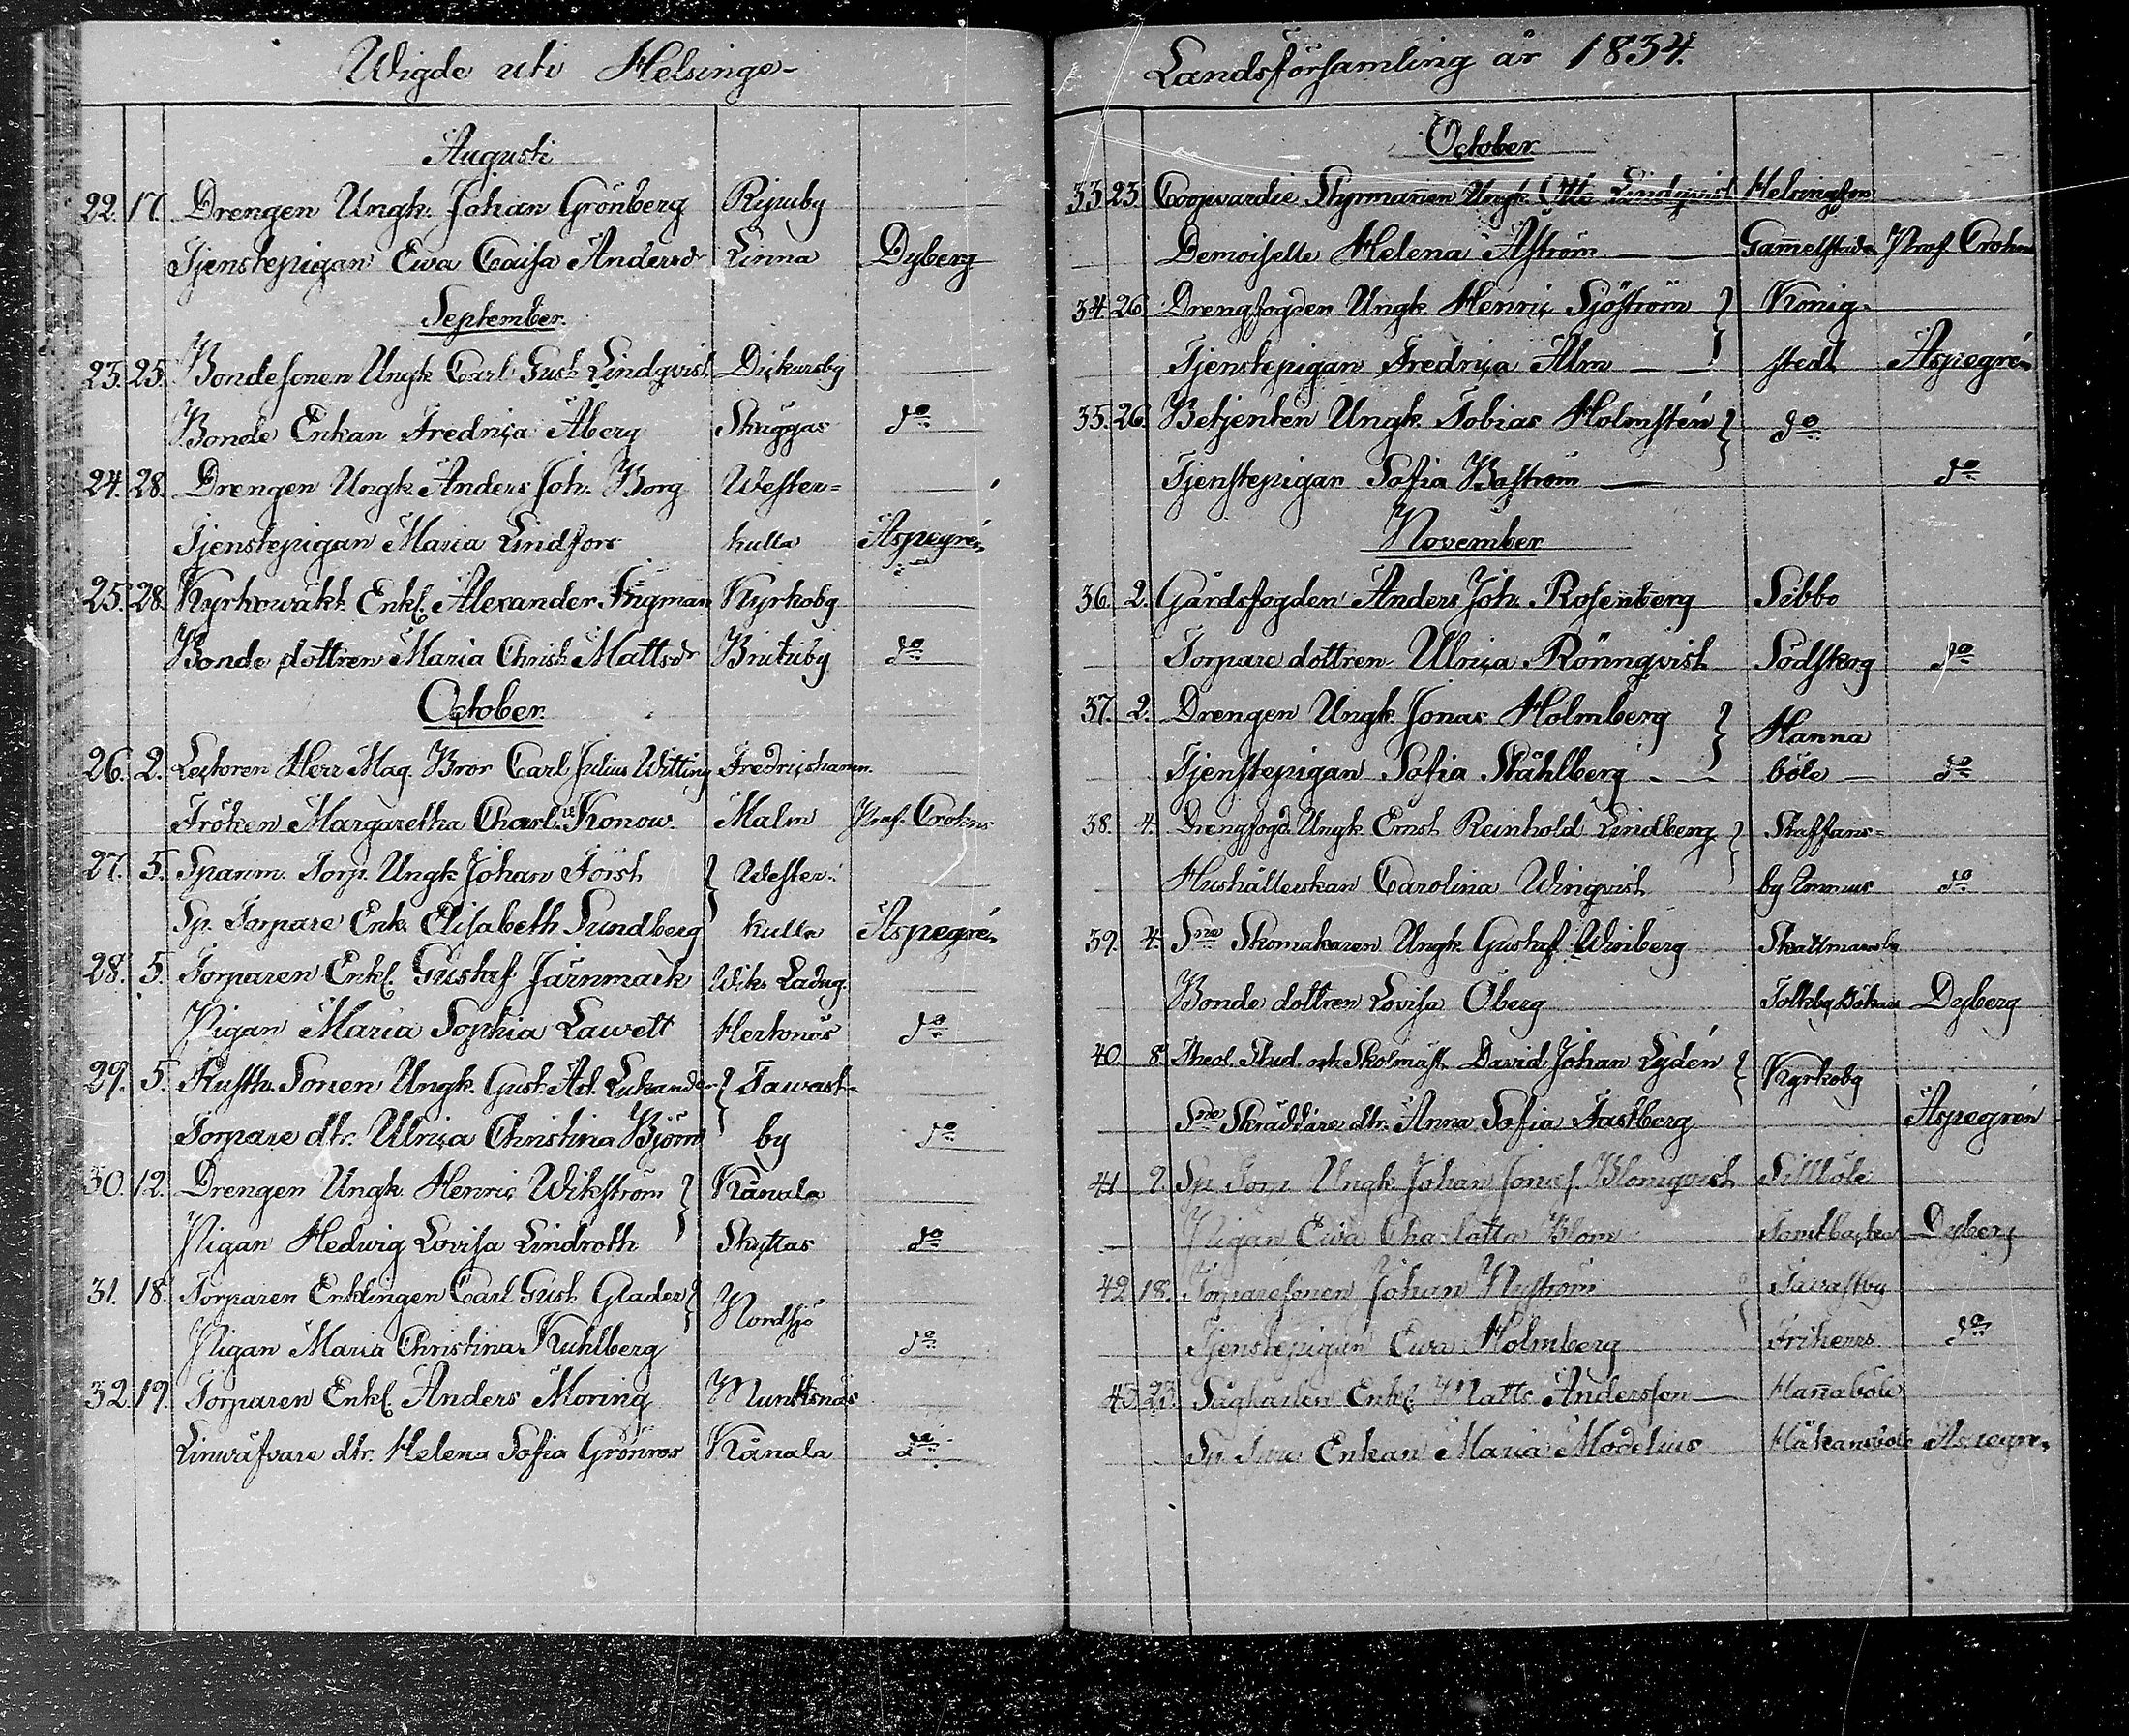 Wigde uti Helsinge-
Augusti
22. 17. Drengen Ungk. Johan Grönberg
Tjenstepigan Ewa Caisa Andersdr Linna Dyberg
September.
23. 25. Bondesonen Ungk Carl Gust. Lindqvist Dickursby
Bonde Enkan Fredrica Åberg Skuggas do
24. 28. Drengen Ungk Anders Joh. Borg Wester=
Tjenstepigan Maria Lindfors kulla Aspegrén
25. 28. Kyrkowakt. Enkl. Alexander Ingman Kyrkoby
Bonde dottren Maria Christ. Mattsdr Brutuby do
October.
26. 2. Lectoren Herr Mag. Bror Carl Julius Witting Fredricshamn.
Fröken Margaretha Charl. Konow. Malm Prof. Crohns
27. 5. Spanm. Torp. Ungk Johan Törst } Wester-
Sp. Torpare Enk. Elisabeth Sundberg kulla Aspegrén
28. 5. Torparen Enkl. Gustaf Järnmark Wiks Ladug.
Pigan Maria Sophia Lawett Hertonäs do
29. 5. Rusth. Sonen Ungk. Gust. Ad. Lukander } Tawast-
Torpare dtr. Ulrica Christina Björn by do
30. 12. Drengen Ungk. Henric Wikström } Kånala
Pigan Hedwig Lovisa Lindroth Skyttas do
31. 18. Torparen Enklingen Carl Gust. Glader } Nordsjö
Pigan Maria Christina Kuhlberg do
32. 19. Torparen Enkl. Anders Moring Munksnäs
Linwäfvare dtr. Helena Sofia Grönroos Kånala do
Landsförsamling år 1834.
October
33 23 Coopvardie Styrmannen Ungk. Otto Lindqvist Helsingfors
Demoiselle Helena Åström Gammelstaden Prof. Crohns
34 26 Drengfogden Ungk Henric Sjöström } König-
Tjenstepigan Fredrica Alm stedt Aspegrén
35. 26. Betjenten Ungk. Tobias Holmstén } do
Tjenstepigan Sofia Baström do
November
36. 2. Gårdsfogden Anders Joh. Rosenberg Sibbo
Torpare dottren Ulrica Rönnqvist Södskog do
37. 2. Drengen Ungk Jonas Holmberg } Hanna
Tjenstepigan Sofia Ståhlberg böle do
38. 4. Drengfogd. Ungk Ernst Reinhold Lindberg } Staffans=
Hushållerskan Carolina Winqvist by do
39. 4. Sne Skomakaren Ungk Gustaf Winberg Skattmansby
Bonde dottren Lovisa Öberg Tolkby Dyberg
40. 8. Theol. Stud. och Skolmäst. David Johan Lydén } Kyrkoby
Sne Skräddare dtr. Anna Sofia Fastberg Aspegrén
41 9. Sp. Torp. Ungk Johan Josef Blomqvist Sillböle
Pigan Ewa Charlotta Blom Tomtbacka Dyberg
42 18. Torparesonen Johan Nyström Tavastby
Tjenstepigan Ewa Holmberg Friherrs do
43. 23. Sågkarlen Enkl. Matts Andersson Hannaböle
Enkan Maria Modelius Håkansböle Aspegrén